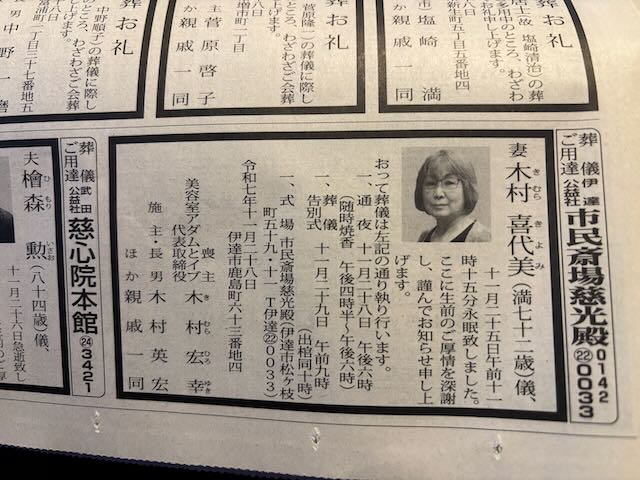 葬お礼
居士故 塩崎清治）の葬
多用中のところ、わざわ
お申し上げます。
八日
新生町五丁目五番地四
塩崎 満
か親戚一同
葬お礼
菅原隆一）の葬儀に際し
ところ、わざわざご会葬
上げます。
八日
増市町一丁目
主 菅原啓子
か親戚一同
葬お礼
中野順子）の葬儀に際し
のところ、わざわざご会葬
し上げます。
八日
富浦町一丁目三十七番地五
男 中野一
か親戚一同
葬儀 伊達公益社 ご用達
市民斎場慈光殿
0142
㉒0033
妻 木村 喜代美（満七十二歳）儀、
きむら きよみ
十一月二十五日午前十一
時十五分永眠致しました。
ここに生前のご厚情を深謝
し、謹んでお知らせ申し上
げます。
おって葬儀は左記の通り執り行います。
一、通夜 十一月二十八日 午後六時
（随時焼香 午後四時半〜午後六時）
一、葬儀告別式 十一月二十九日 午前九時
（出棺同十時）
一、式場 市民斎場慈光殿（伊達市松ヶ枝
町五十九‐十一 T伊達㉒0033）
令和七年十一月二十八日
伊達市鹿島町六十三番地四
喪主 木村宏幸
きむらひろゆき
美容室アダムとイブ
代表取締役
施主・長男 木村英宏
ほか親戚一同
葬儀 武田公益社 ご用達
慈心院本館
㉔3421
夫 檜森 勲（八十四歳）儀、
ひもり いさお
十一月二十六日急逝致し